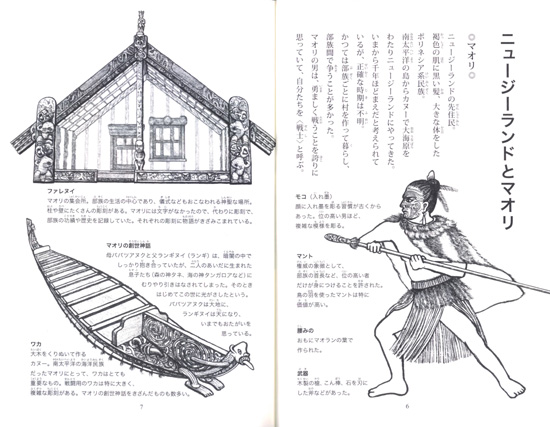 ニュージーランドとマオリ
◎マオリ◎
ニュージーランドの先住民。
褐色の肌に黒い髪、大きな体をした
ポリネシア系民族。
南太平洋の島からカヌーで大海原を
わたりニュージーランドにやってきた。
いまから千年ほどまえだと考えられて
いるが、正確な時期は不明。
かつては部族ごとに村を作って暮らし、
部族間で争うことが多かった。
マオリの男は、勇ましく戦うことを誇りに
思っていて、自分たちを〈戦士〉と呼ぶ。
モコ(入れ墨)
顔に入れ墨を彫る習慣が古くから
あった。位の高い男ほど、
複雑な模様を彫る。
マント
権威の象徴として、
部族の首長など、位の高い者
だけが身につけることを許された。
鳥の羽を使ったマントは特に
価値が高い。
腰みの
おもにマオランの葉で
作られた。
武器
木製の槍、こん棒、石を刃に
した斧などがあった。
6
ファレヌイ
マオリの集会所。部族の生活の中心であり、儀式などもおこなわれる神聖な場所。
柱や壁にたくさんの彫刻がある。マオリには文字がなかったので、代わりに彫刻で、
部族の功績や歴史を記録していた。それぞれの彫刻に物語がきざみこまれている。
マオリの創世神話
母パパツアヌクと父ランギヌイ(ランギ)は、暗闇の中で
しっかり抱き合っていたが、二人のあいだに生まれた
息子たち(森の神タネ、海の神タンガロアなど)に
むりやり引きはなされてしまった。そのとき
はじめてこの世に光がさしたという。
パパツアヌクは大地に、
ランギヌイは天になり、
いまでもおたがいを
思っている。
ワカ
大木をくりぬいて作る
カヌー。南太平洋の海洋民族
だったマオリにとって、ワカはとても
重要なもの。戦闘用のワカは特に大きく、
複雑な彫刻がある。マオリの創世神話をきざんだものも多数。
7